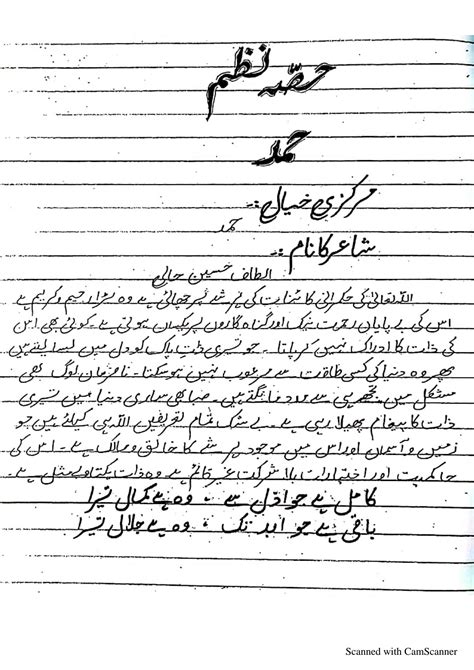 حصہ نظم
حمد
مرکزی خیال :-
حمد
شاعر کا نام :-
الطاف حسین حالی
اللہ تعالیٰ کی حکمرانی کائنات کی ہر شے پر چھائی ہے وہ بڑا رحیم و کریم ہے
اس کی بے پایاں رحمت نیک اور گناہ گاروں پر یکساں ہوتی ہے۔ کوئی بھی اس
کی ذات کا ادراک نہیں کر پاتا۔ جو تیری ذات پاک کو دل میں بسا لیتے ہیں
پھر وہ دنیا کی کسی طاقت سے مرعوب نہیں ہو سکتا۔ نافرمان لوگ بھی
مشکل میں تجھ ہی سے مدد مانگتے ہیں۔ صبا بھی ساری دنیا میں تیری
ذات کا پیغام پھیلا رہی ہے۔ بے شک تمام تعریفیں اللہ ہی کیلئے ہیں جو
زمین و آسمان اور اس میں موجود ہر شے کا خالق و مالک ہے۔ اس کی
حاکمیت اور اختیارات بلا شرکت غیر قائم ہے۔ وہ ذات یکتا و بے مثل ہے۔
کامل ہے جو ازل سے ، وہ ہے کمال تیرا
باقی ہے جو ابد تک ، وہ ہے جلال تیرا
Scanned with CamScanner